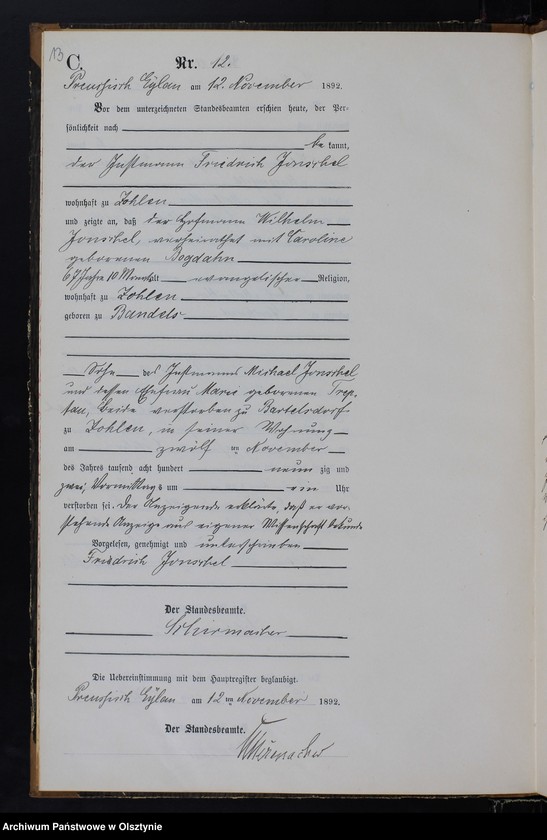 13
C.
Nr. 12.
Preussisch Eylau am 12. November 1892.
Vor dem unterzeichneten Standesbeamten erschien heute, der Per-
sönlichkeit nach
be kannt,
der Instmann Friedrich
wohnhaft zu Zohlen
und zeigte an, daß der Hofmann Wilhelm
verheirathet mit Caroline
geborenen Bogdahn
67 Jahre 10 Monat alt evangelischer Religion,
wohnhaft zu Zohlen
geboren zu Bandels
Sohn des Instmanns Michael
und dessen Ehefrau Marie geborenen Trep-
tau, beide verstorben zu Bartelsdorf
zu Zohlen, in seiner Wohnung
am zwölf ten November
des Jahres tausend acht hundert neun zig und
zwei, Vormittags um ein Uhr
verstorben sei. Der Anzeigende erklärte, daß er vor-
stehende Anzeige aus eigener Wissenschaft bekunde
Vorgelesen, genehmigt und unterschrieben
Friedrich
Der Standesbeamte.
Schirmacher
Die Uebereinstimmung mit dem Hauptregister beglaubigt.
Preussisch Eylau am 12 ten November 1892.
Der Standesbeamte.
Schirmacher
Archiwum Państwowe w Olsztynie